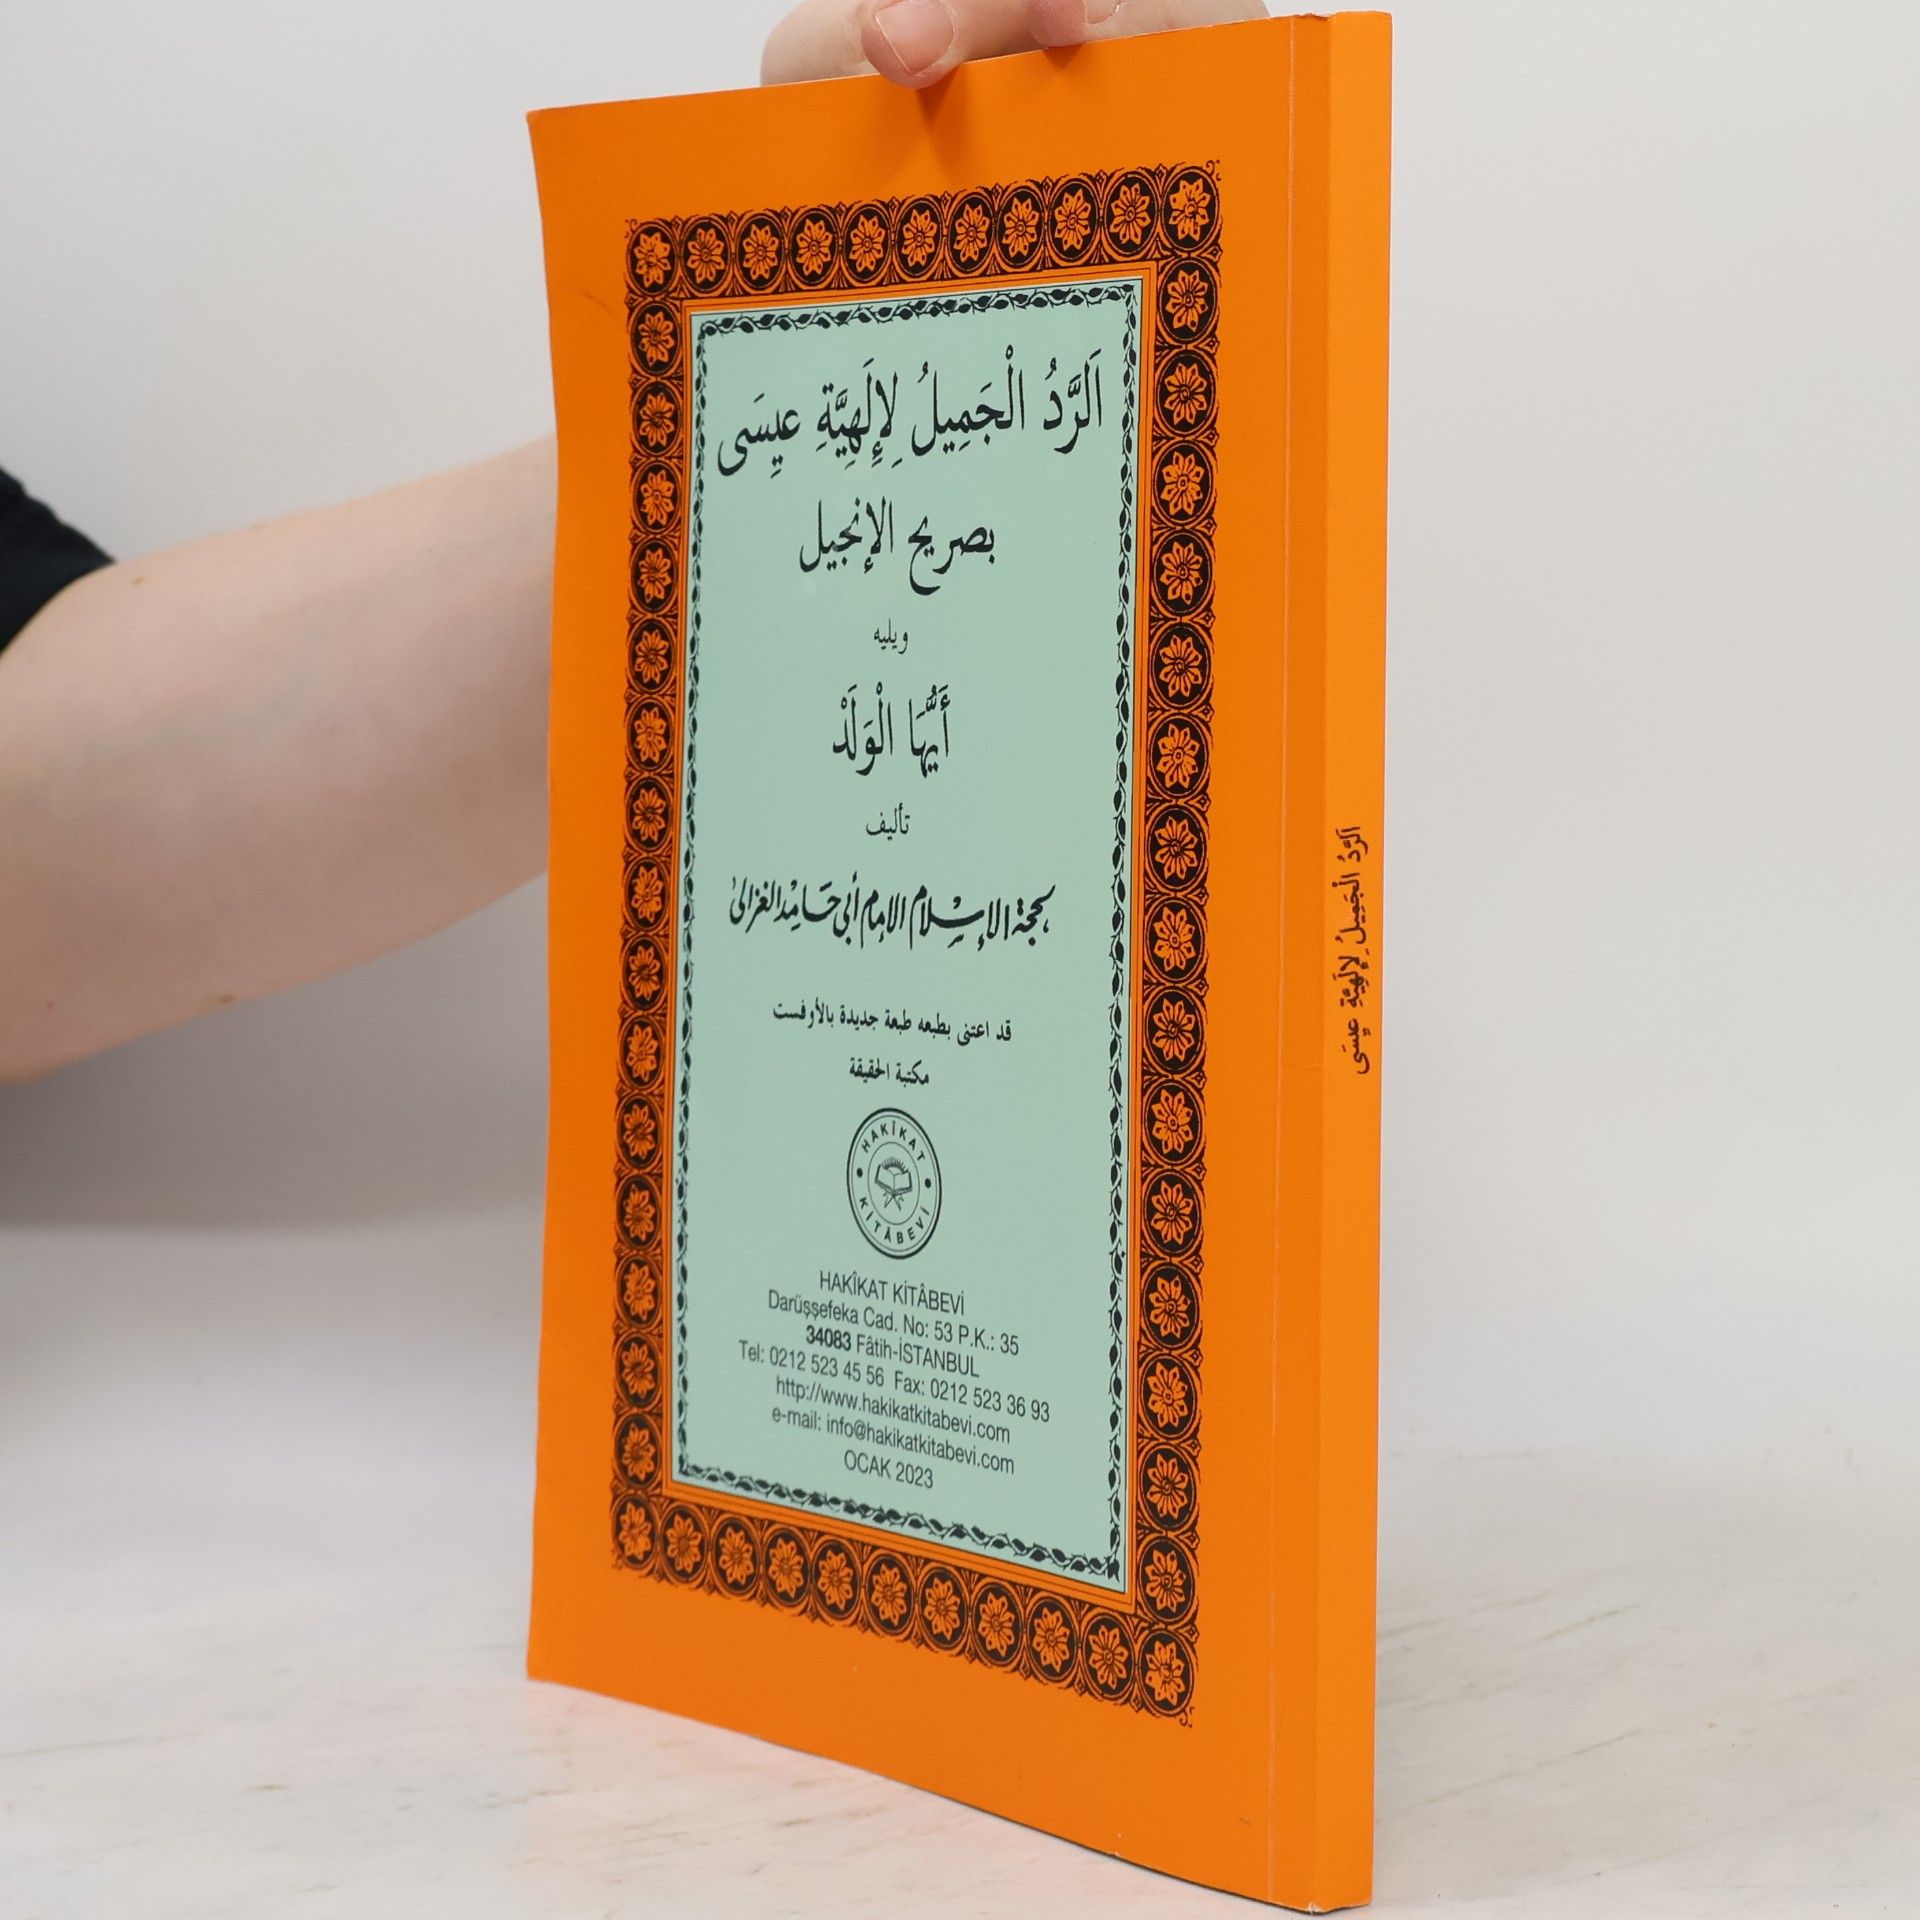 اَلرَّدُ الْجَمِيلُ لِإِلَهِيَّةِ عِيسَى
بصريح الإنجيل
ويليه
أَيُّهَا الْوَلَدْ
تأليف
لحجة الإسلام الإمام أبي حامد الغزالى
قد اعتنى بطبعه طبعة جديدة بالأوفست
مكتبة الحقيقة
HAKÎKAT
KİTÂBEVİ
HAKÎKAT KİTÂBEVİ
Darüşşefeka Cad. No: 53 P.K.: 35
34083 Fâtih-İSTANBUL
Tel: 0212 523 45 56 Fax: 0212 523 36 93
http://www.hakikatkitabevi.com
e-mail: info@hakikatkitabevi.com
OCAK 2023
اَلرَّدُ الْجَمِيلُ لِإِلَهِيَّةِ عِيسَى